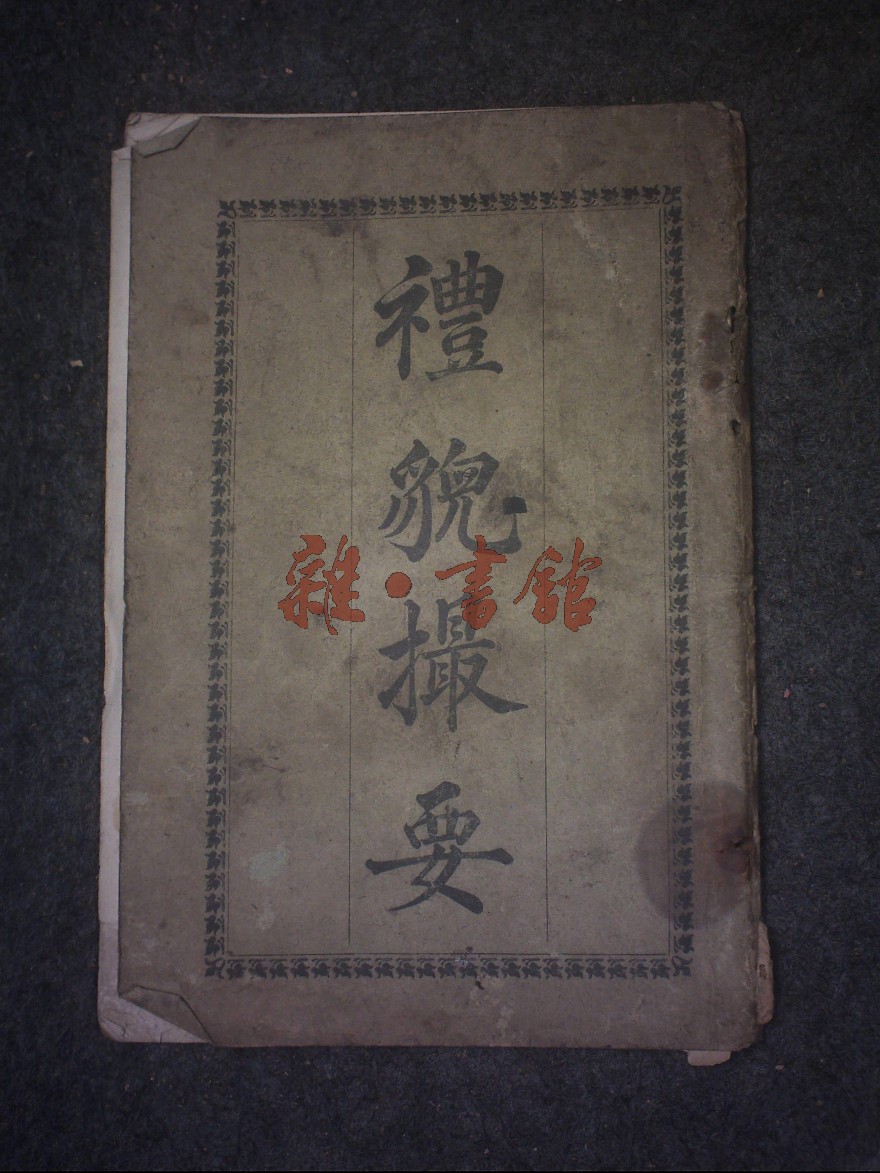 禮貌撮要
雜·書館